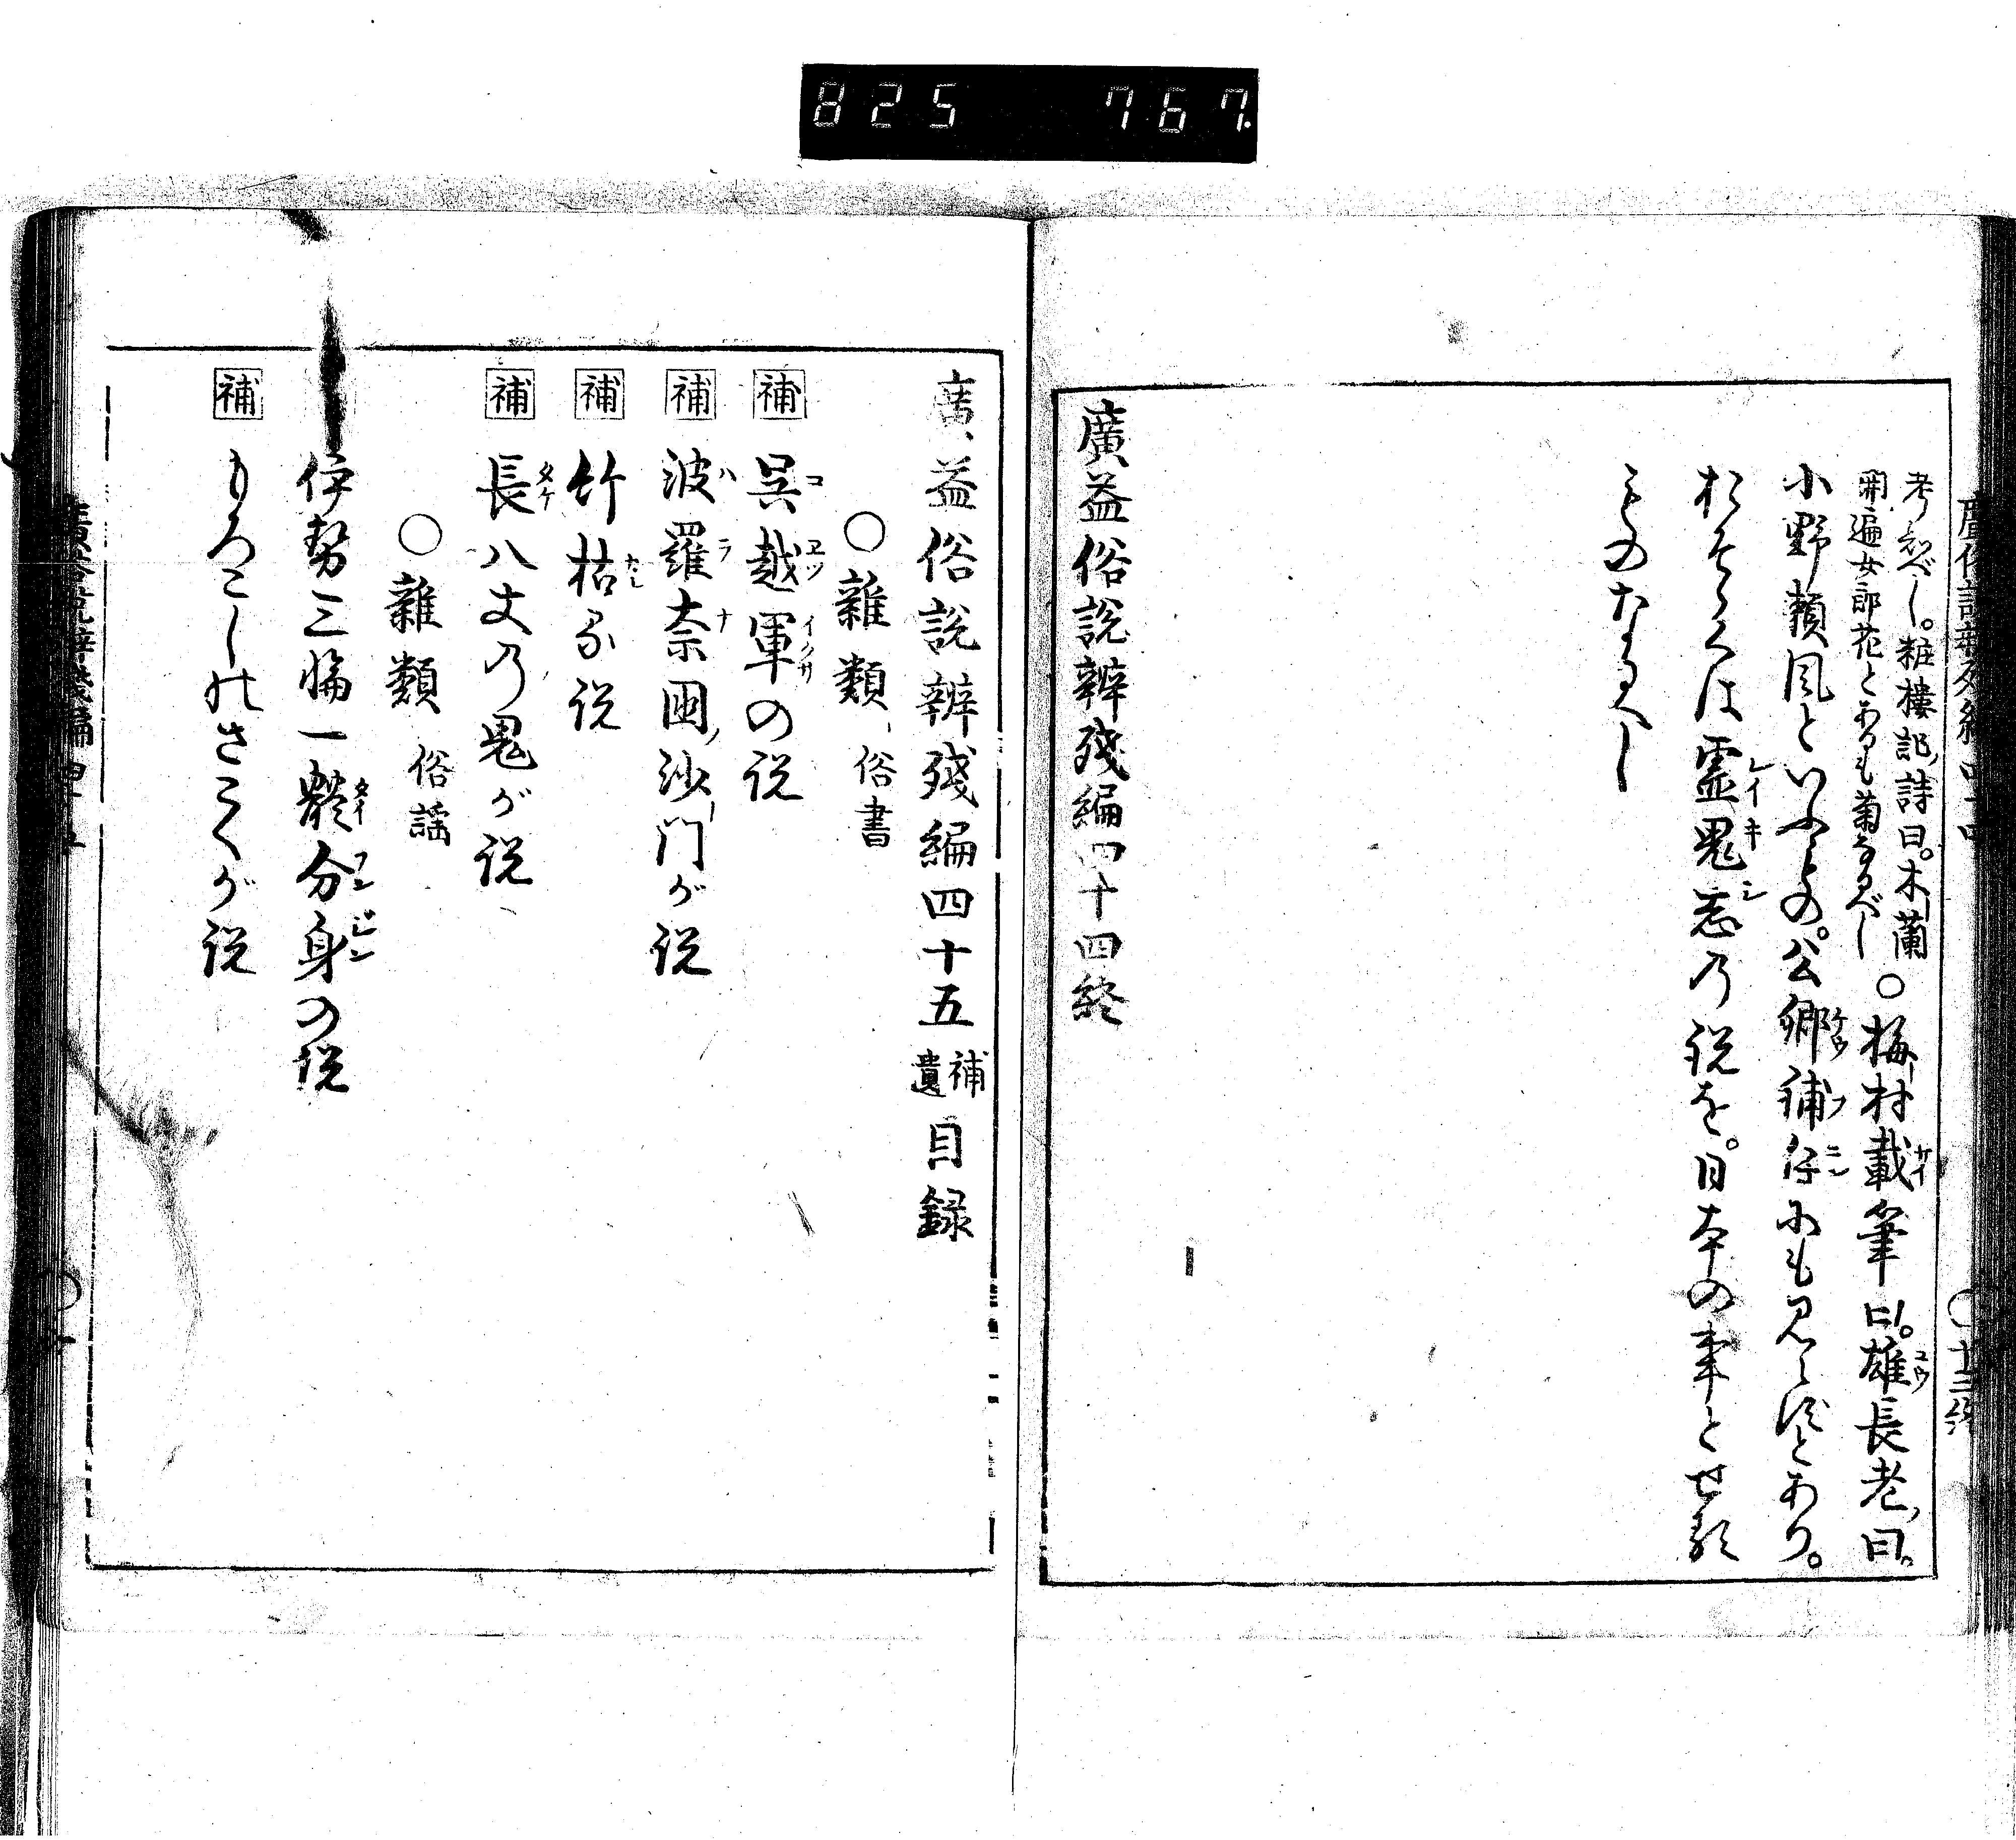 825 767
考知べし。粧樓記詩曰。木蘭
開遍女郎花とあるも菊なるべし
○梅村載筆曰。雄長老曰。
小野頼風といふもの。公卿補任にも見えずとあり。
おそらくは霊鬼志の説を。日本の事とせる
ものなるべし
廣益俗説辨残編四十四終
廣益俗説辨残編四十五補遺目録
○雜類 俗書
補 呉越軍の説
補 波羅奈國沙門が説
補 竹枯る説
補 長八丈の鬼が説
○雜類 俗謡
伊勢三輪一體分身の説
補 もろこしのさこくが説